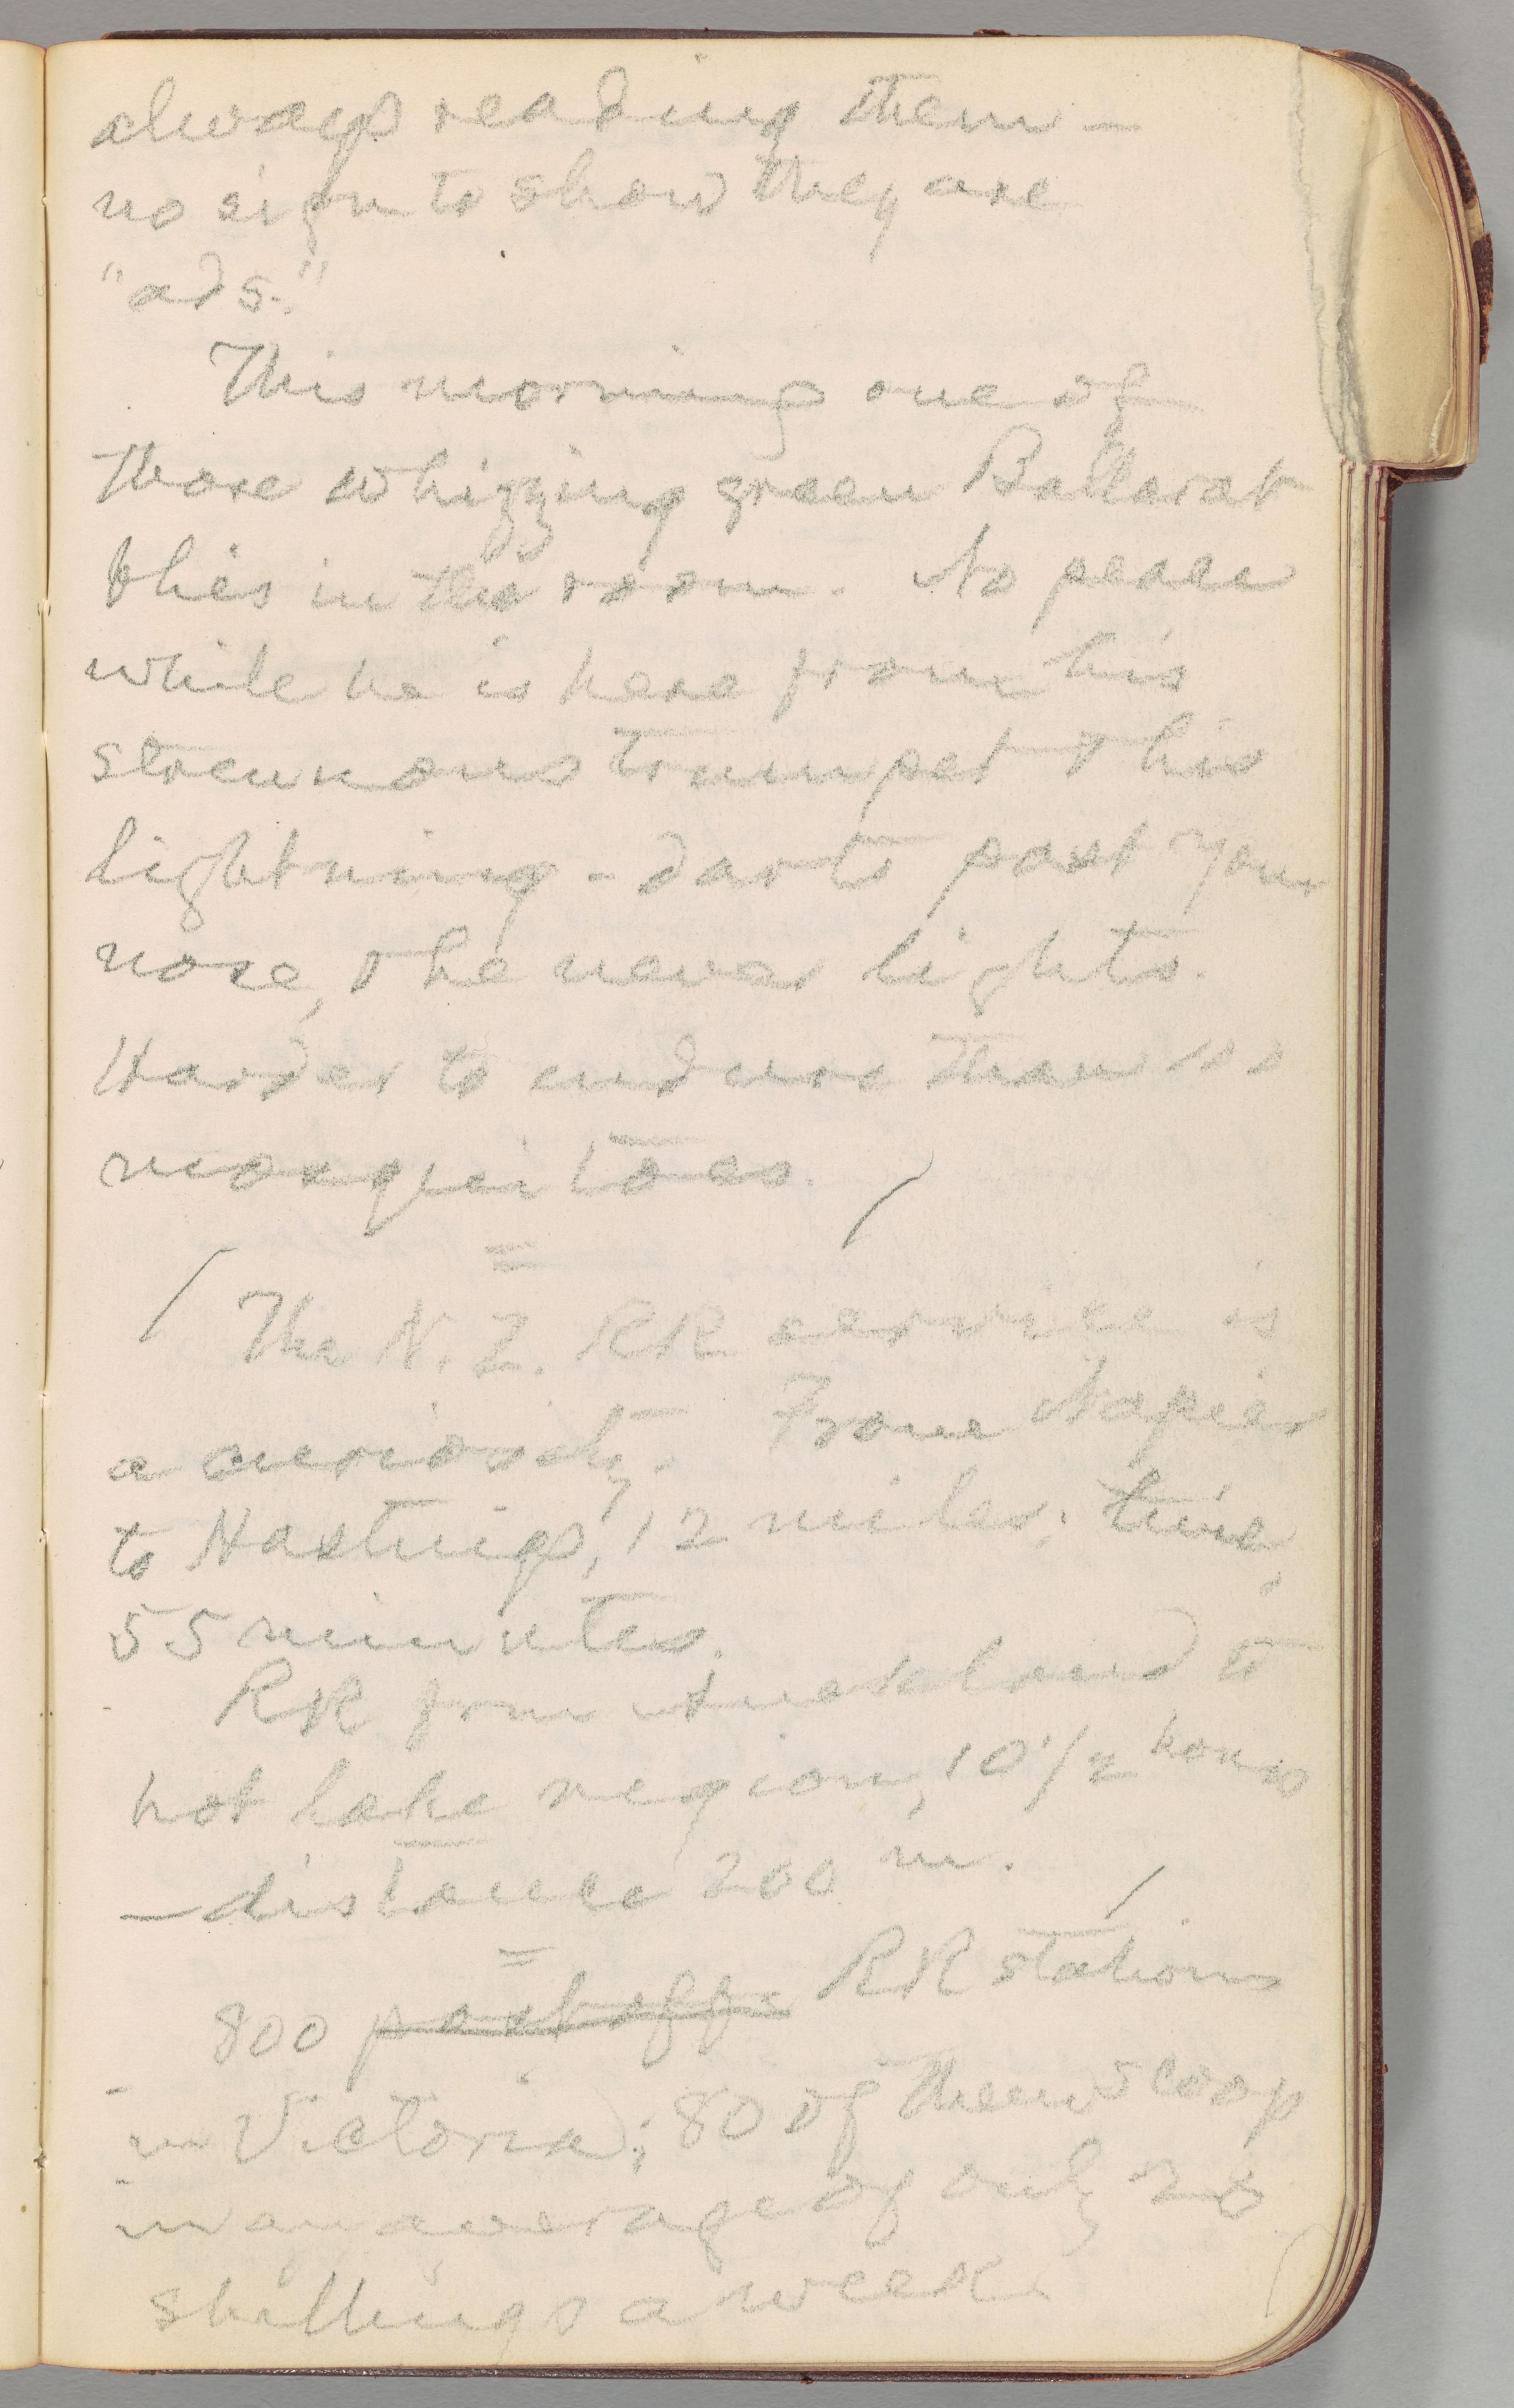 always reading them —
no sign to show they are
"ads."
This morning one of
those whizzing green Ballarat
flies in the room. No peace
while he is here from his
strenuous trumpet & his
lightning-darts past your
nose, & he never lights.
Harder to endure than 100
mosquitoes. /
=
/ The N. Z. RR service is
a curiosity. From Napier
to Hastings, 12 miles; time,
55 minutes.
RR from Auckland to
hot lake region, 10 1/2 hours
— distance 200 m. /
=
800 post offs RR stations
in Victoria; 80 of them scoop
in an average of only 20
shillings a week.